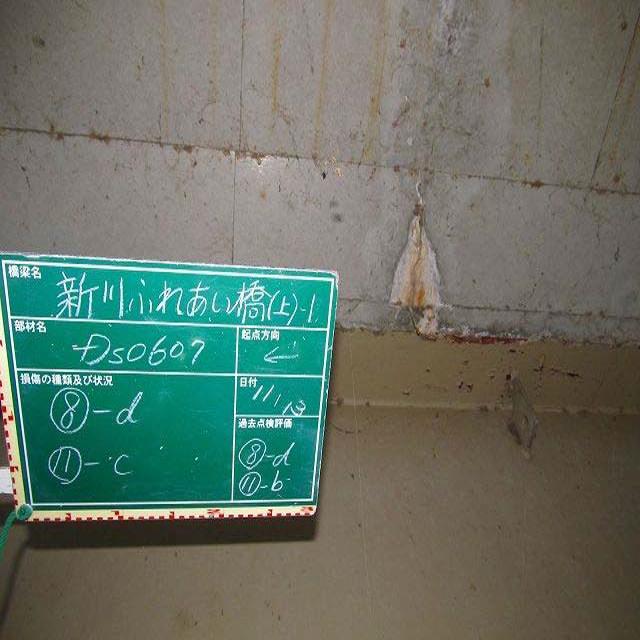 橋梁名
新川ふれあい橋(上)-1
部材名
Ds0607
起点方向
←
損傷の種類及び状況
⑧-d
⑪-c
日付
11/13
過去点検評価
⑧-d
⑪-b